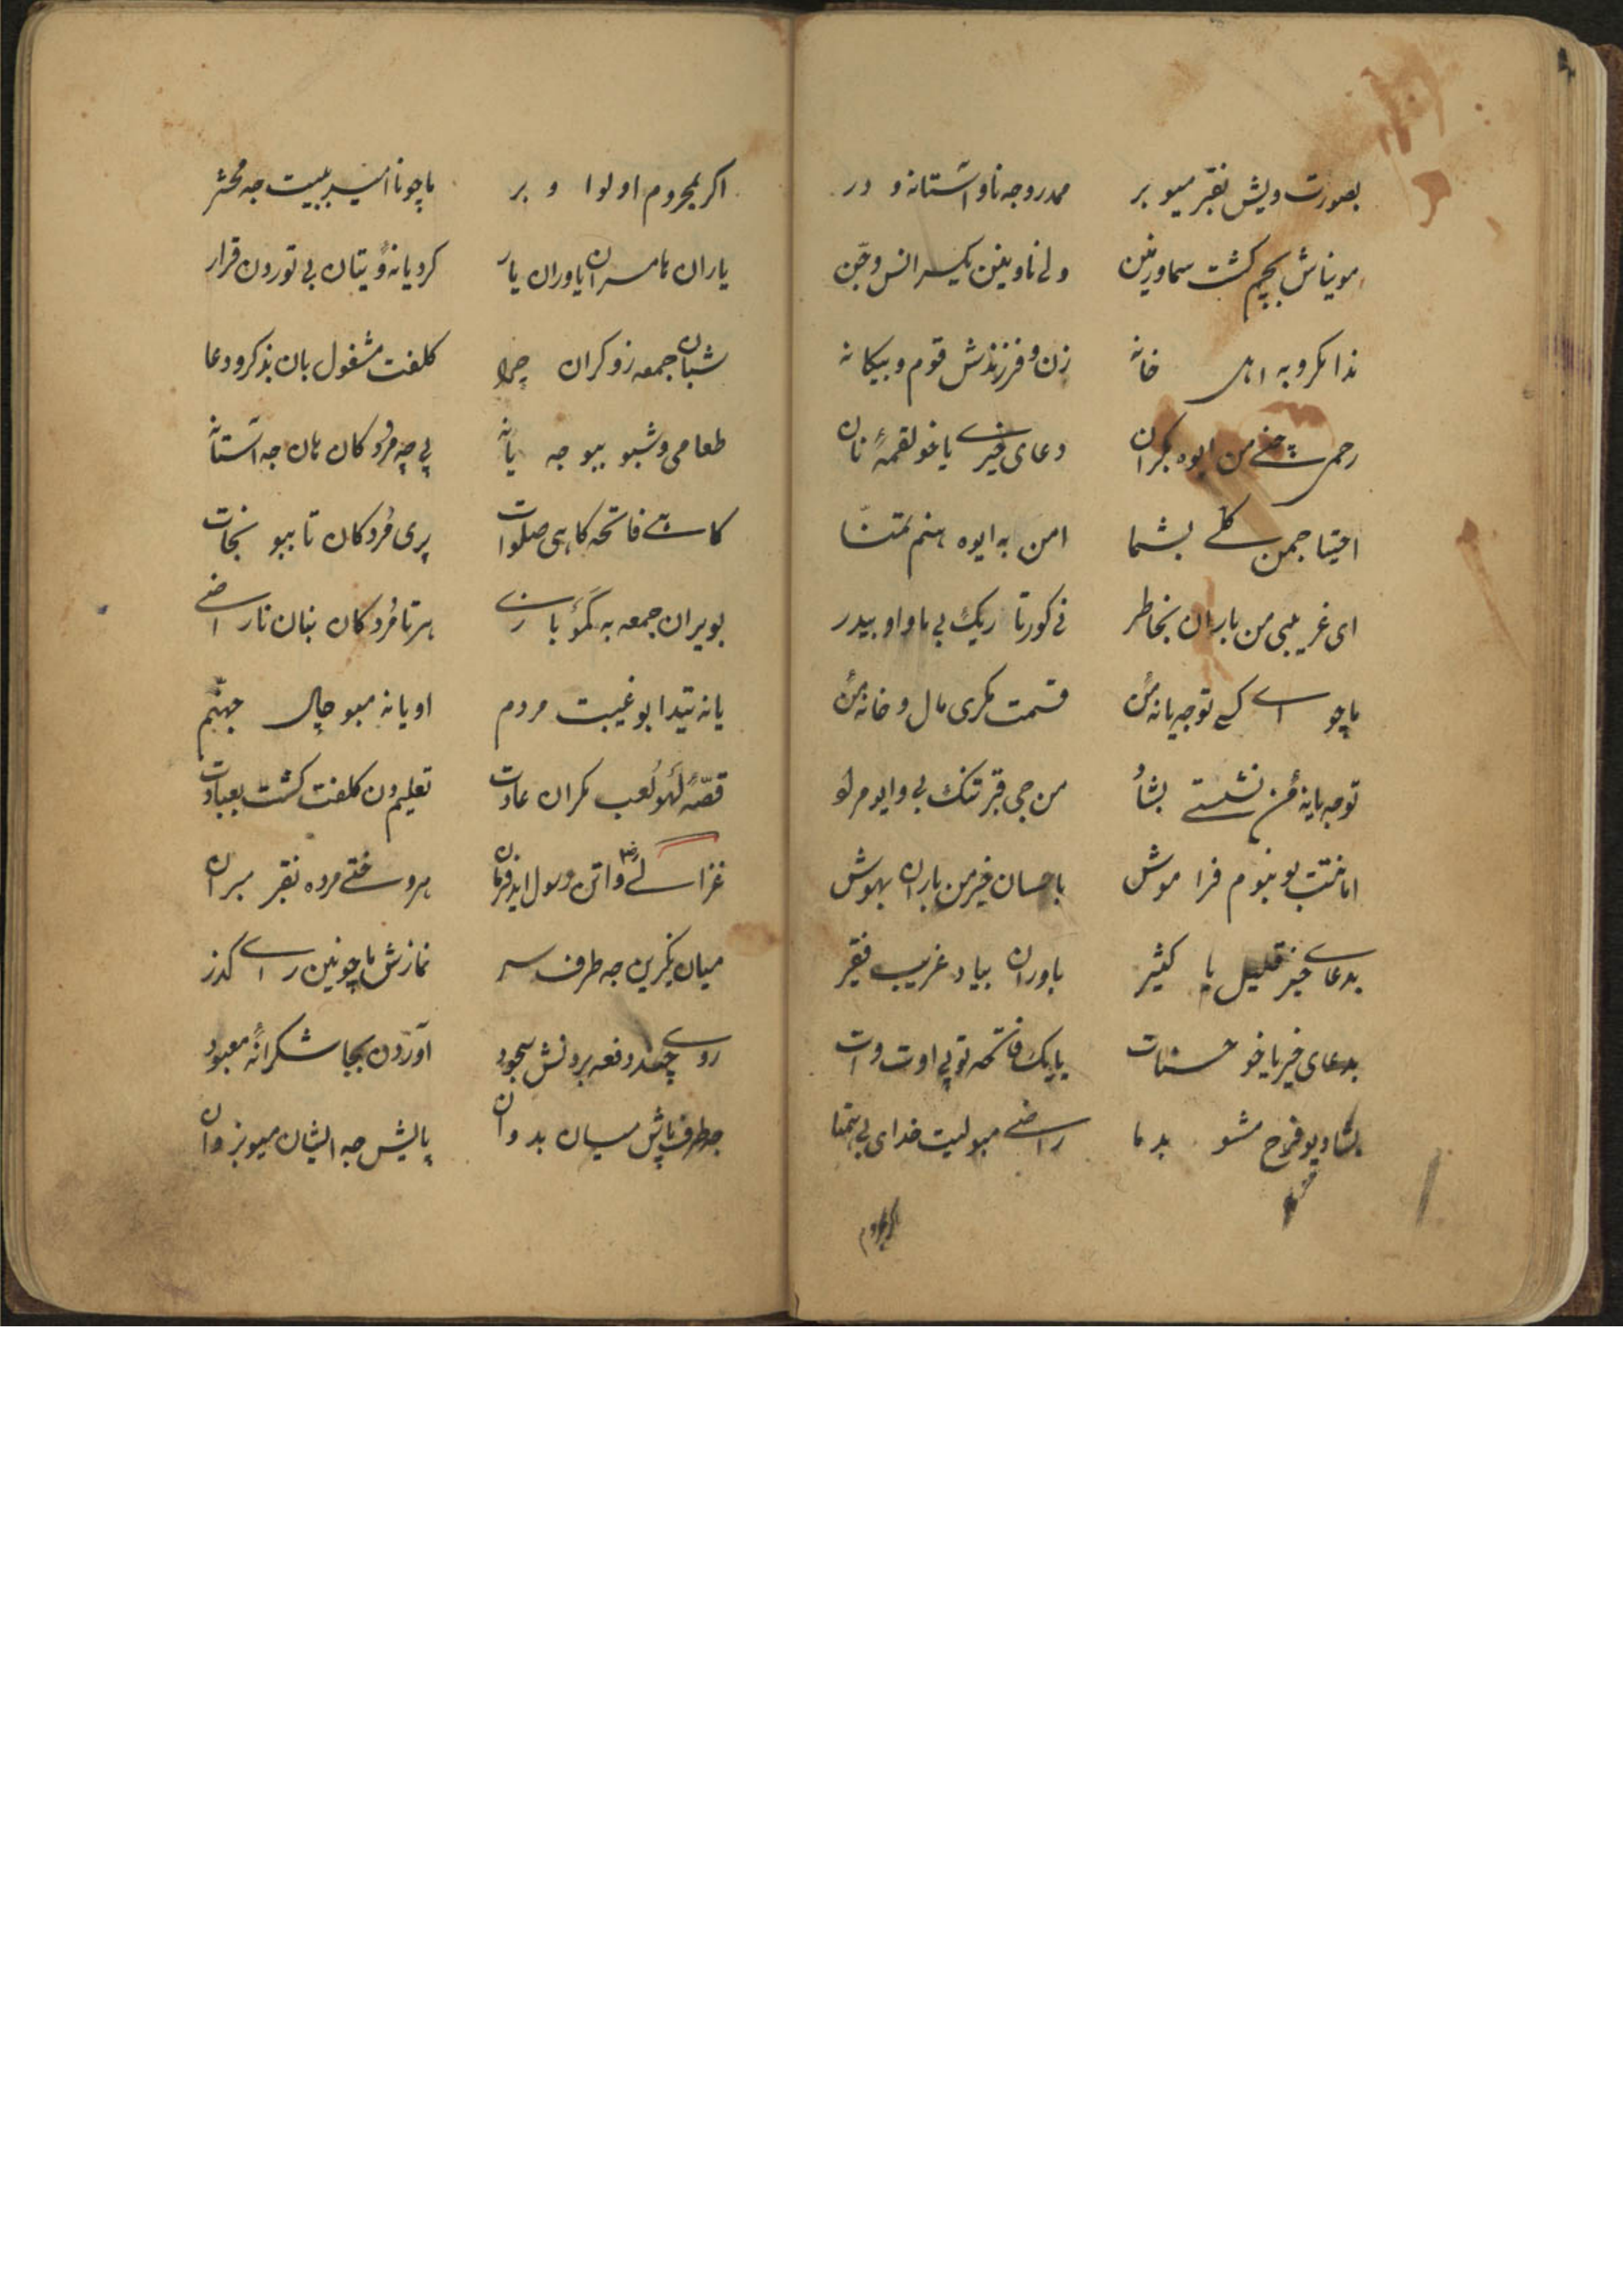 بصورت ویش بقبر میو بر ممدرو جه ناو آستانه و در
مویناش بچم کشت سما و زمین ولی ناوینن یکسر انس و جن
ندا مکرو به اهل خانه زن و فرزندش قوم و بیکانه
رحمی من ایوه بکران دعای خیری یا خو لقمهٔ نان
احتیاجمن کلی بشما امن به ایوه هنم تمنّا
ای غریبی من باران بخاطر نی کور تاریک بی ماوا و بیدر
ماچو ای کسی تو جه یانه من قسمت مکری مال و خانه من
تو جه یانهٔ من نشستی بشاد من جی قبر تنک بی وایه مراد
اما عقبت بو نبوم فراموش باحسان خیر من باران بهوش
بدعای خیر قلیل یا کثیر باوران بیاد غریب فقیر
بدعای خیر یا خو حسنات یا یک فاتحه تو پی اوت وات
بشاد یو فرح مشو بدما راضی مبو لیت خدای بی همتا
اکر بمحروم او لوا و بر ماچو نا امید بیت جه محشر
یاران هامسران یاوران یار کردیانه ویتان بی تور دن قرار
شبان جمعه زو کران چرا کلفت مشغول بان بذکر و دعا
طعامی وشبو ببو جه یانه پی چه مردکان مان جه آستانه
کاهی فاتحه کاهی صلوات پری مردکان تا ببو نجات
بویران جمعه به کمهٔ بازی هر تا مردکان بنان ناراضی
یانه تیدا بو غیبت مردم او یانه مبو چال جهنم
قصّهٔ لهو لعب مکران عادت تعلیم دن کلفت کشت بعبادت
غزالی واتن رسول ایذ فرمان هر وختی مرده بقبر مبران
میان نکیرین جه طرف سر نمازش ماچو نین رای کذر
روی چند دفعه بردنش سجود آوردن بجا شکرانهٔ معبود
جه طرف پاش میان بدوان پالیش جه ایشان میو بزوان